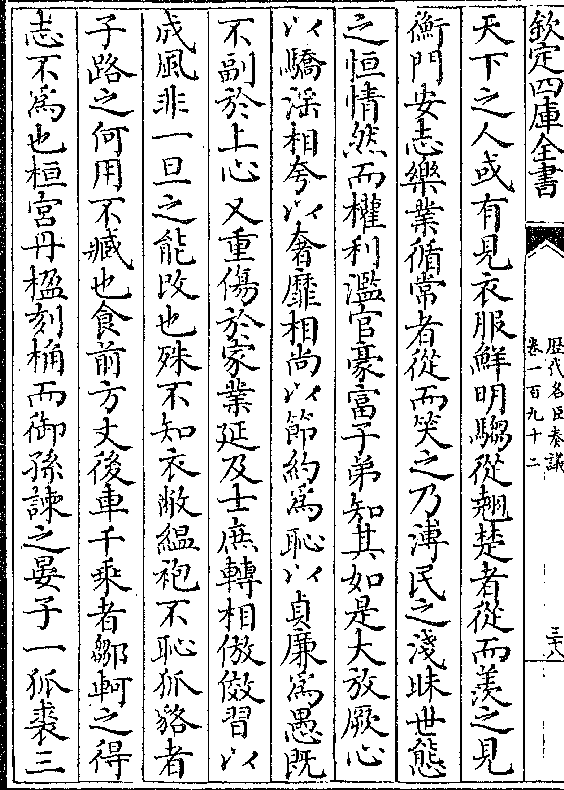 欽定四庫全書
歴代名臣奏議
卷一百九十二
三八
天下之人或有見衣服鮮明騶從翹楚者從而羨之見
衡門安志樂業循常者從而笑之乃溥民之淺昧世態
之恒情然而權利濫官豪富子弟知其如是大放厥心
以驕滛相夸以奢靡相尚以節約為恥以貞廉為愚既
不副於上心又重傷於家業延及士庶轉相倣傚習以
成風非一旦之能改也殊不知衣敝緼袍不恥狐貉者
子路之何用不臧也食前方丈後車千乘者鄒軻之得
志不為也桓宮丹楹刻桷而御孫諫之晏子一狐裘三